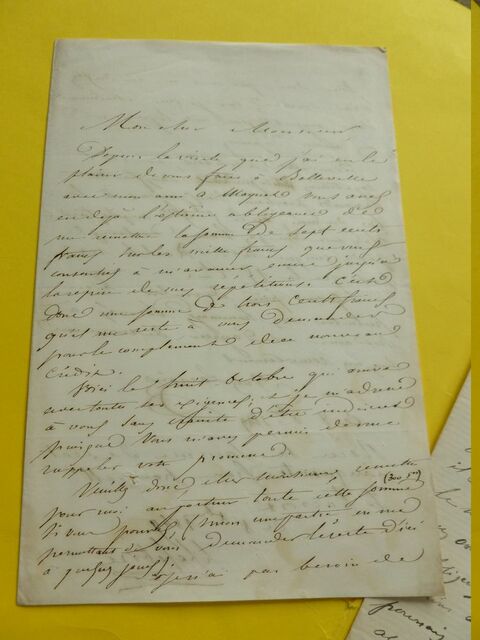 Mon cher Monsieur
Depuis la visite que j'ai eu le
plaisir de vous faire à Belleville
avec mon ami A. Maquet vous avez
eu déjà l'extrême obligeance de
me remettre la somme de sept cents
francs sur les mille francs que vous
consentez à m'avancer encore jusqu'à
la reprise de mes répétitions. C'est
donc une somme de trois cents francs
qu'il me reste à vous demander
pour le complément de ce nouveau
crédit.
Voici le huit Octobre qui arrive
avec toutes ses exigences; et je m'adresse
à vous sans crainte d'être indiscret
puisque vous m'avez permis de me
rappeler votre promesse.
Veuillez donc cher Monsieur remettre
pour moi au porteur toute cette somme (300 f.)
si vous pouvez (sinon une partie en me
permettant de vous demander le reste d'ici
à quelques jours)!
je n'ai pas besoin de